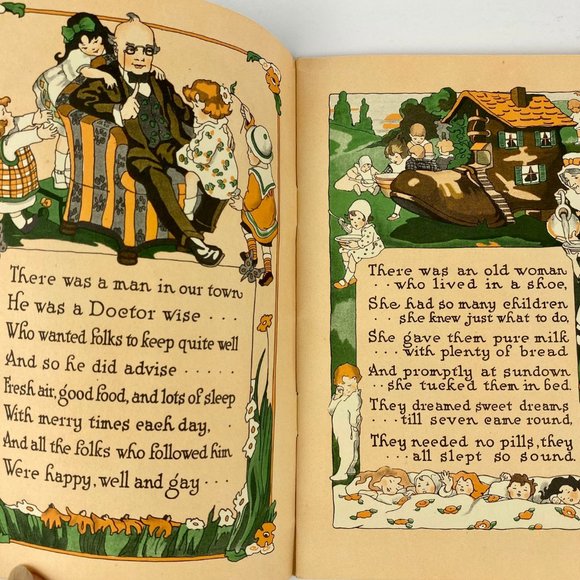 There was a man in our town
He was a Doctor wise ....
Who wanted folks to keep quite well
And so he did advise ......
Fresh air, good food, and lots of sleep
With merry times each day, .
And all the folks who followed him
Were happy, well and gay ...
There was an old woman
.. who lived in a shoe,
She had so many children
.. she knew just what to do,
She gave them pure milk
... with plenty of bread
And promptly at sundown
.. she tucked them in bed.
They dreamed sweet dreams
... till seven came round,
They needed no pills, they
... all slept so sound.